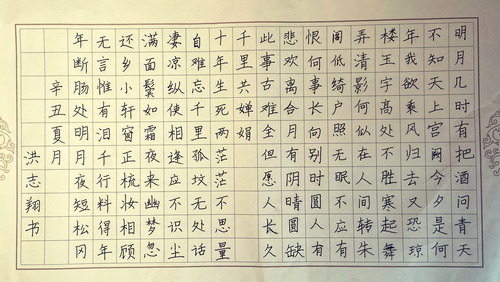 明月几时有把酒问青天
不知天上宫阙今夕是何
年我欲乘风归去又恐琼
楼玉宇高处不胜寒起舞
弄清影何似在人间转朱
阁低绮户照无眠不应有
恨何事长向别时圆人有
悲欢离合月有阴晴圆缺
此事古难全但愿人长久
千里共婵娟
十年生死两茫茫不思量
自难忘千里孤坟无处话
凄凉纵使相逢应不识尘
满面鬓如霜夜来幽梦忽
还乡小轩窗正梳妆相顾
无言惟有泪千行料得年
年断肠处明月夜短松冈
辛丑夏月
洪志翔书